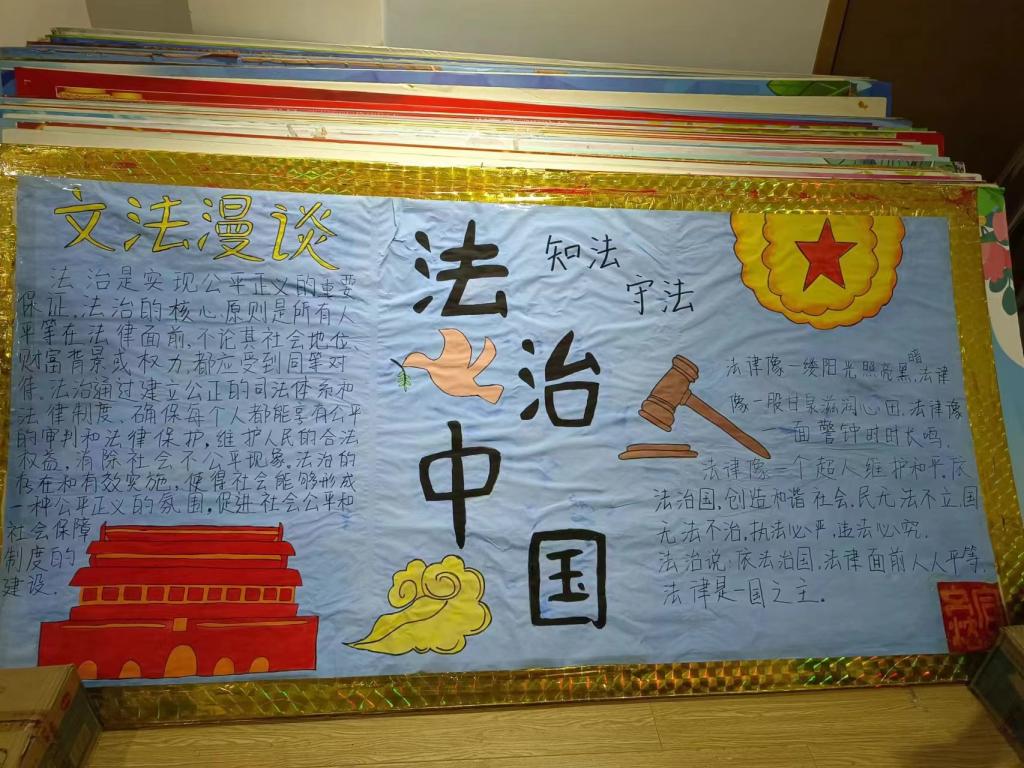 文法漫谈
法治是实现公平正义的重要
保证,法治的核心原则是所有人
平等在法律面前,不论其社会地位
财富背景或权力,都应受到同等对
待。法治通过建立公正的司法体系和
法律制度、确保每个人都能享有公平
的审判和法律保护,维护人民的合法
权益,消除社会不公平现象。法治的
存在和有效实施,使得社会能够形成
一种公平正义的氛围,促进社会公平和
社会保障
制度的
建设.
法
治
中
国
知法
守法
法律像一缕阳光照亮黑暗,法律
像一股甘泉滋润心田,法律像
一面警钟时时长鸣.
法律像一个超人维护和平.依
法治国,创造和谐社会,民无法不立,国
无法不治,执法必严,违法必究.
法治说:依法治国,法律面前人人平等.
法律是一国之主.